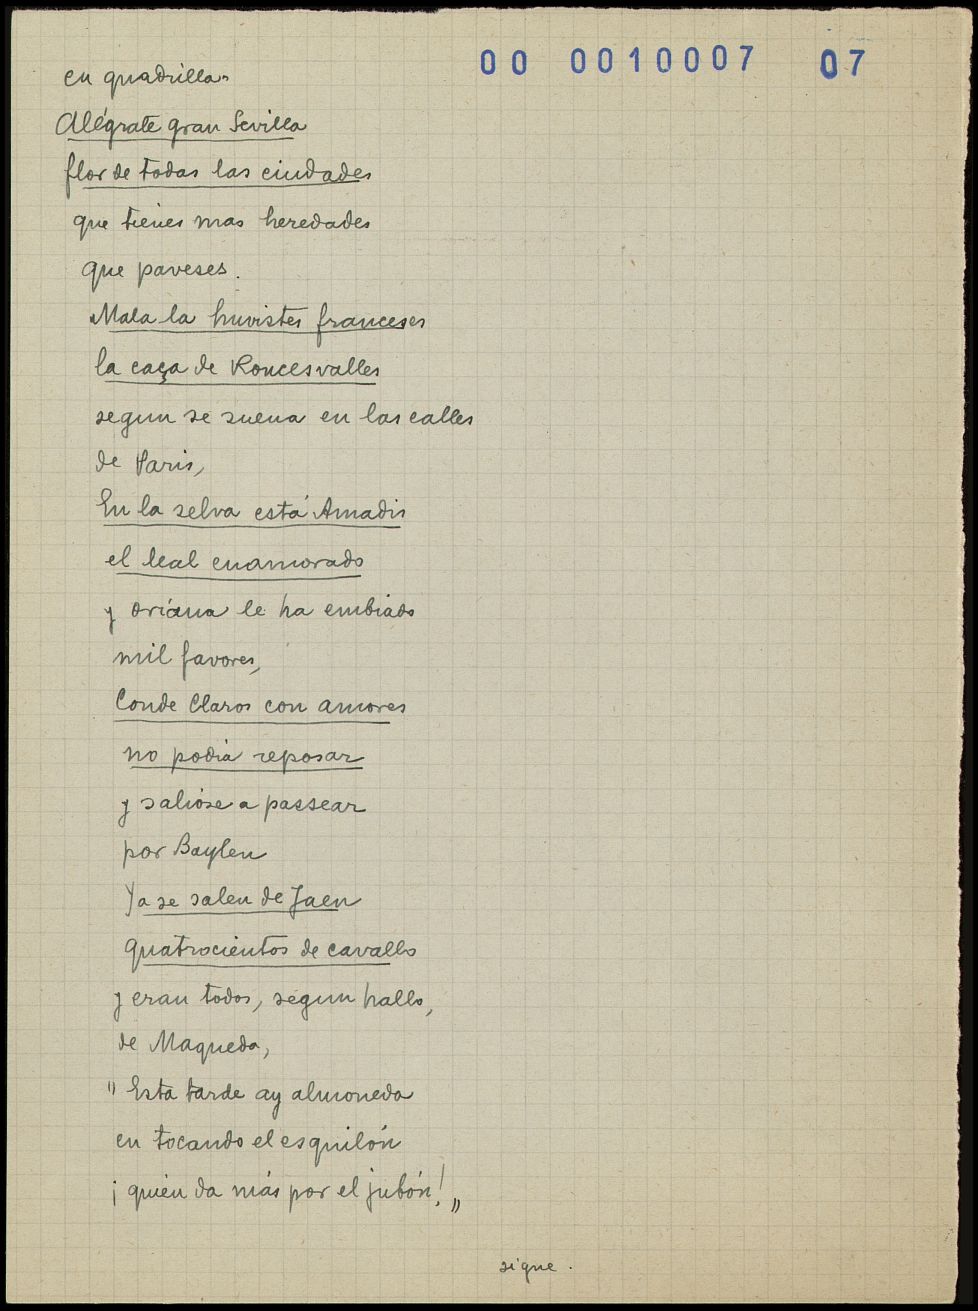 00 0010007 07
en quadrillas
Alégrate gran Sevilla
flor de todas las ciudades
que tienes mas heredades
que paveses.
Mala la huvistes franceses
la caça de Roncesvalles
segun se suena en las calles
de Paris,
En la selva está Amadis
el leal enamorado
y Oriana le ha embiado
mil favores,
Conde Claros con amores
no podia reposar
y salióse a passear
por Baylen
Ya se salen de Jaen
quatrocientos de cavallo
y eran todos, segun hallo,
de Maqueda,
"Esta tarde ay almoneda
en tocando el esquilón
¡quién da más por el jubón!"
sigue.